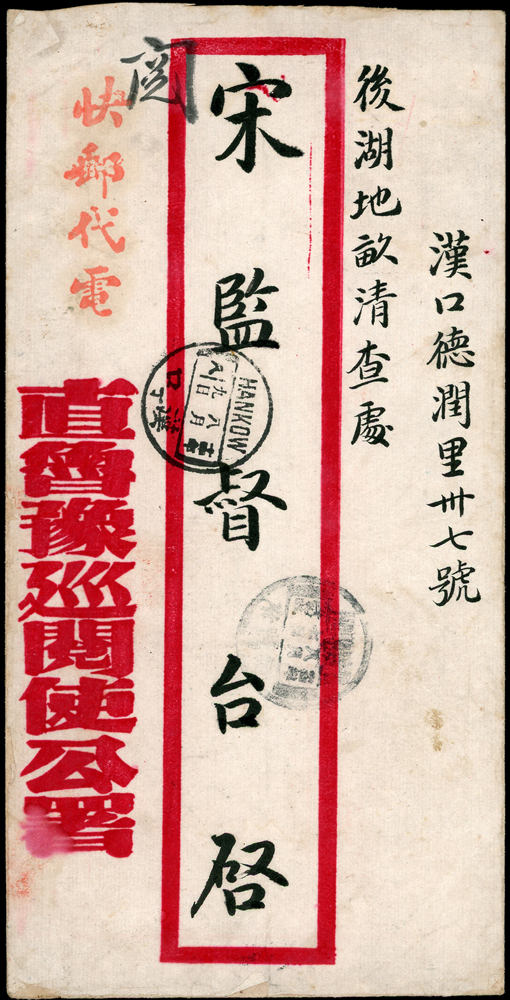 漢口德潤里卅七號
後湖地畝清查處
宋監督台啓
快郵代電
直魯豫巡閱使公署
HANKOW
漢口